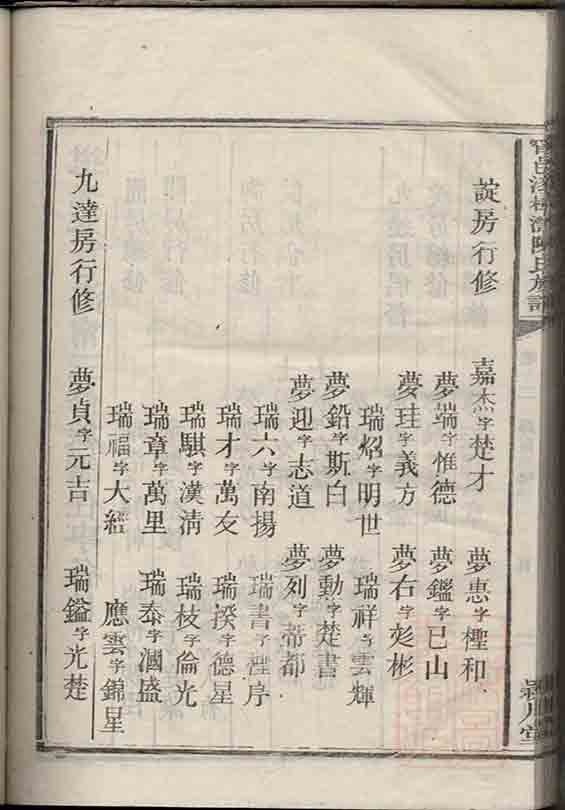 錠房行修
嘉杰字楚才 夢惠字檉和
夢端字惟德 夢鑑字已山
夢珪字義方 夢右字彪彬
瑞炤字明世 瑞祥字雲輝
夢鉛字斯白 夢勳字楚書
夢迎字志道 夢列字蒂都
瑞六字南揚 瑞書字程序
瑞才字萬友 瑞揆字德星
瑞騏字漢清 瑞枝字倫光
瑞章字萬里 瑞泰字國盛
瑞福字大經 應雲字錦星
九達房行修 夢貞字元吉 瑞鎰字光楚
陳氏族譜
潁川堂